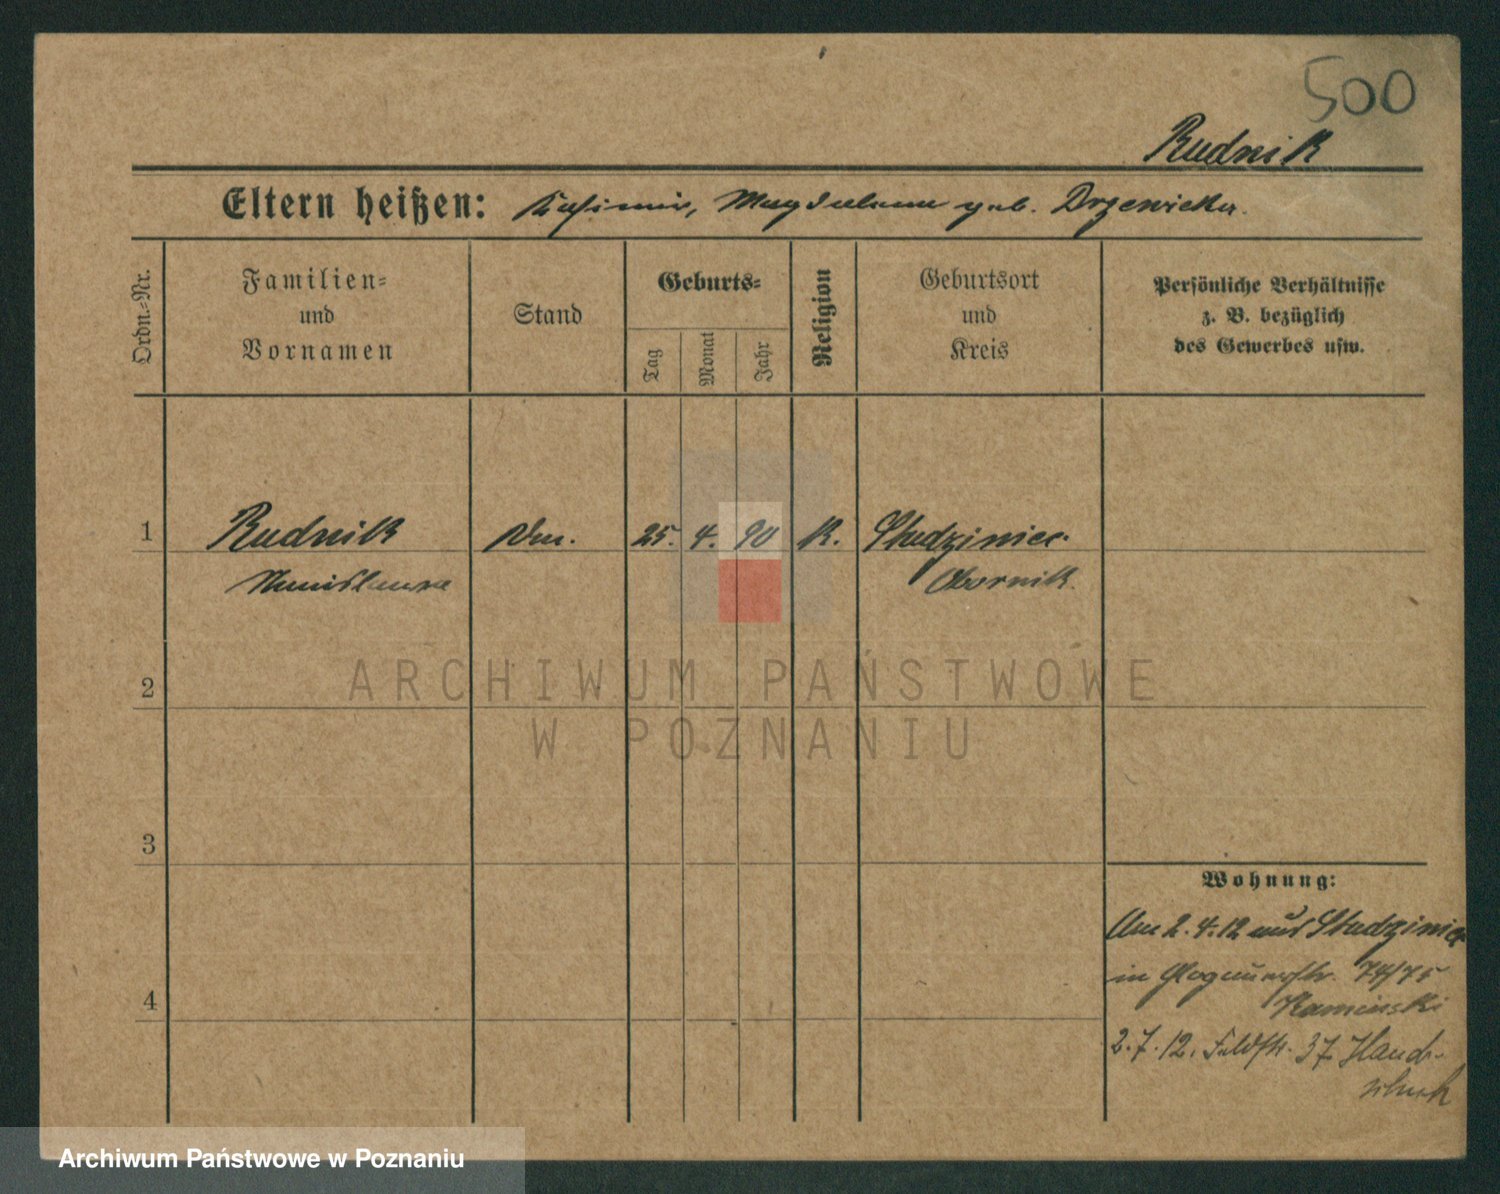 500
Rudnik
Eltern heißen: Kasimir, Magdalena geb. Drzewiecka.
Ordn.-Nr.
Familien-
und
Vornamen
Stand
Geburts-
Tag
Monat
Jahr
Religion
Geburtsort
und
Kreis
Persönliche Verhältnisse
z. B. bezüglich
des Gewerbes usw.
1 Rudnik 25. 4. 90 K. Studziniec.
Stanislawa Obornik.
2
3
4
Wohnung:
Am 2.4.12 aus Studziniec
in Glogauerstr. 74/75
Kaminski
2.7.12. Feldstr. 37 Hand-
schuh
ARCHIWUM PAŃSTWOWE
W POZNANIU
Archiwum Państwowe w Poznaniu